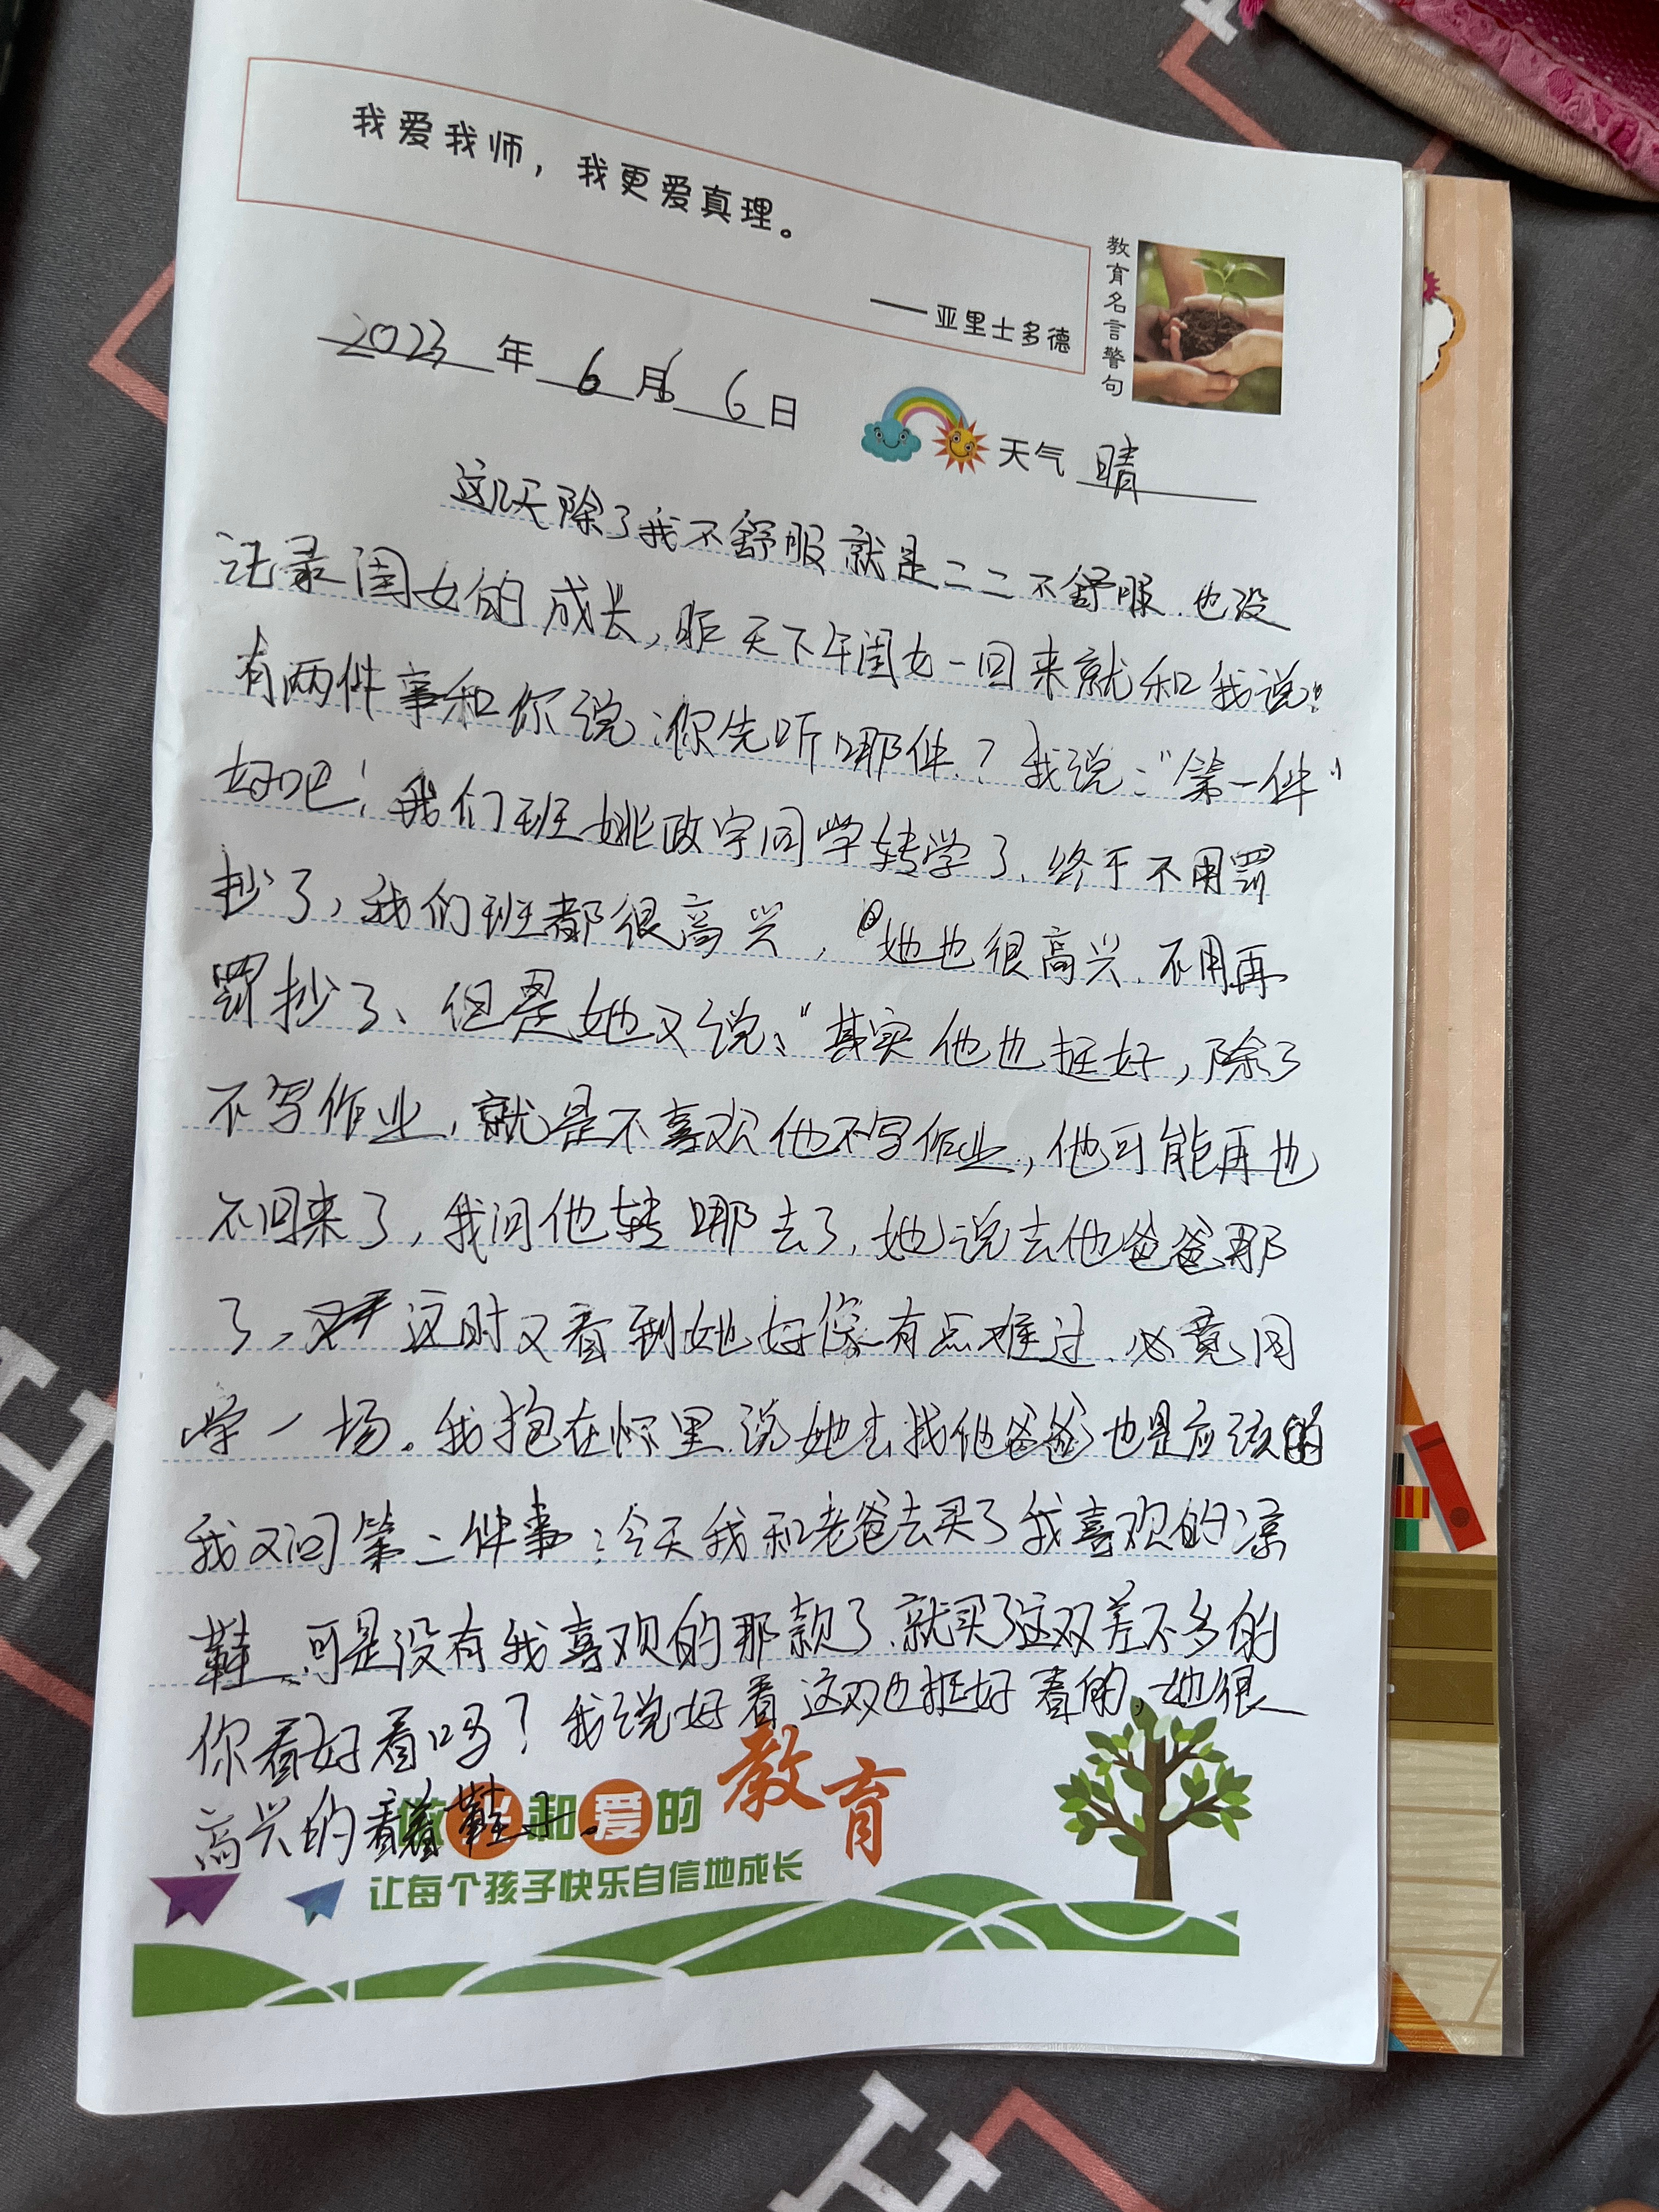 我爱我师，我更爱真理。
——亚里士多德
教育名言警句
2023年6月6日
天气 晴
这几天除了我不舒服就是二二不舒服.也没
记录闺女的成长,昨天下午闺女一回来就和我说:
有两件事和你说:你先听哪件.?我说:"第一件"
好吧!我们班姚政宇同学转学了.终于不用罚
抄了,我们班都很高兴,她也很高兴.不用再
罚抄了、但是她又说:"其实他也挺好,除了
不写作业,就是不喜欢他不写作业,他可能再也
不回来了,我问他转哪去了,她说去他爸爸那
了,这时又看到她好像有点难过.必竟同
学一场。我抱在怀里.说她去找他爸爸也是应该的
我又问第二件事:今天我和老爸去买了我喜欢的凉
鞋,可是没有我喜欢的那款了.就买了这双差不多的
你看好看吗?我说好看这双也挺好看的,她很
高兴的看着鞋子.
做 和爱的教育
让每个孩子快乐自信地成长